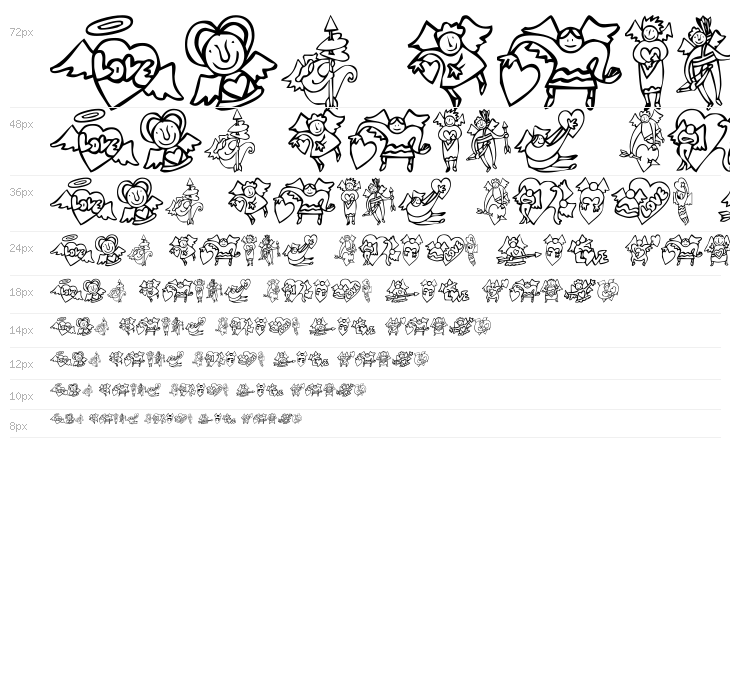 72px LOVE
48px LOVE
36px LOVE LOVE
24px LOVE LOVE LOVE
18px
14px
12px
10px
8px